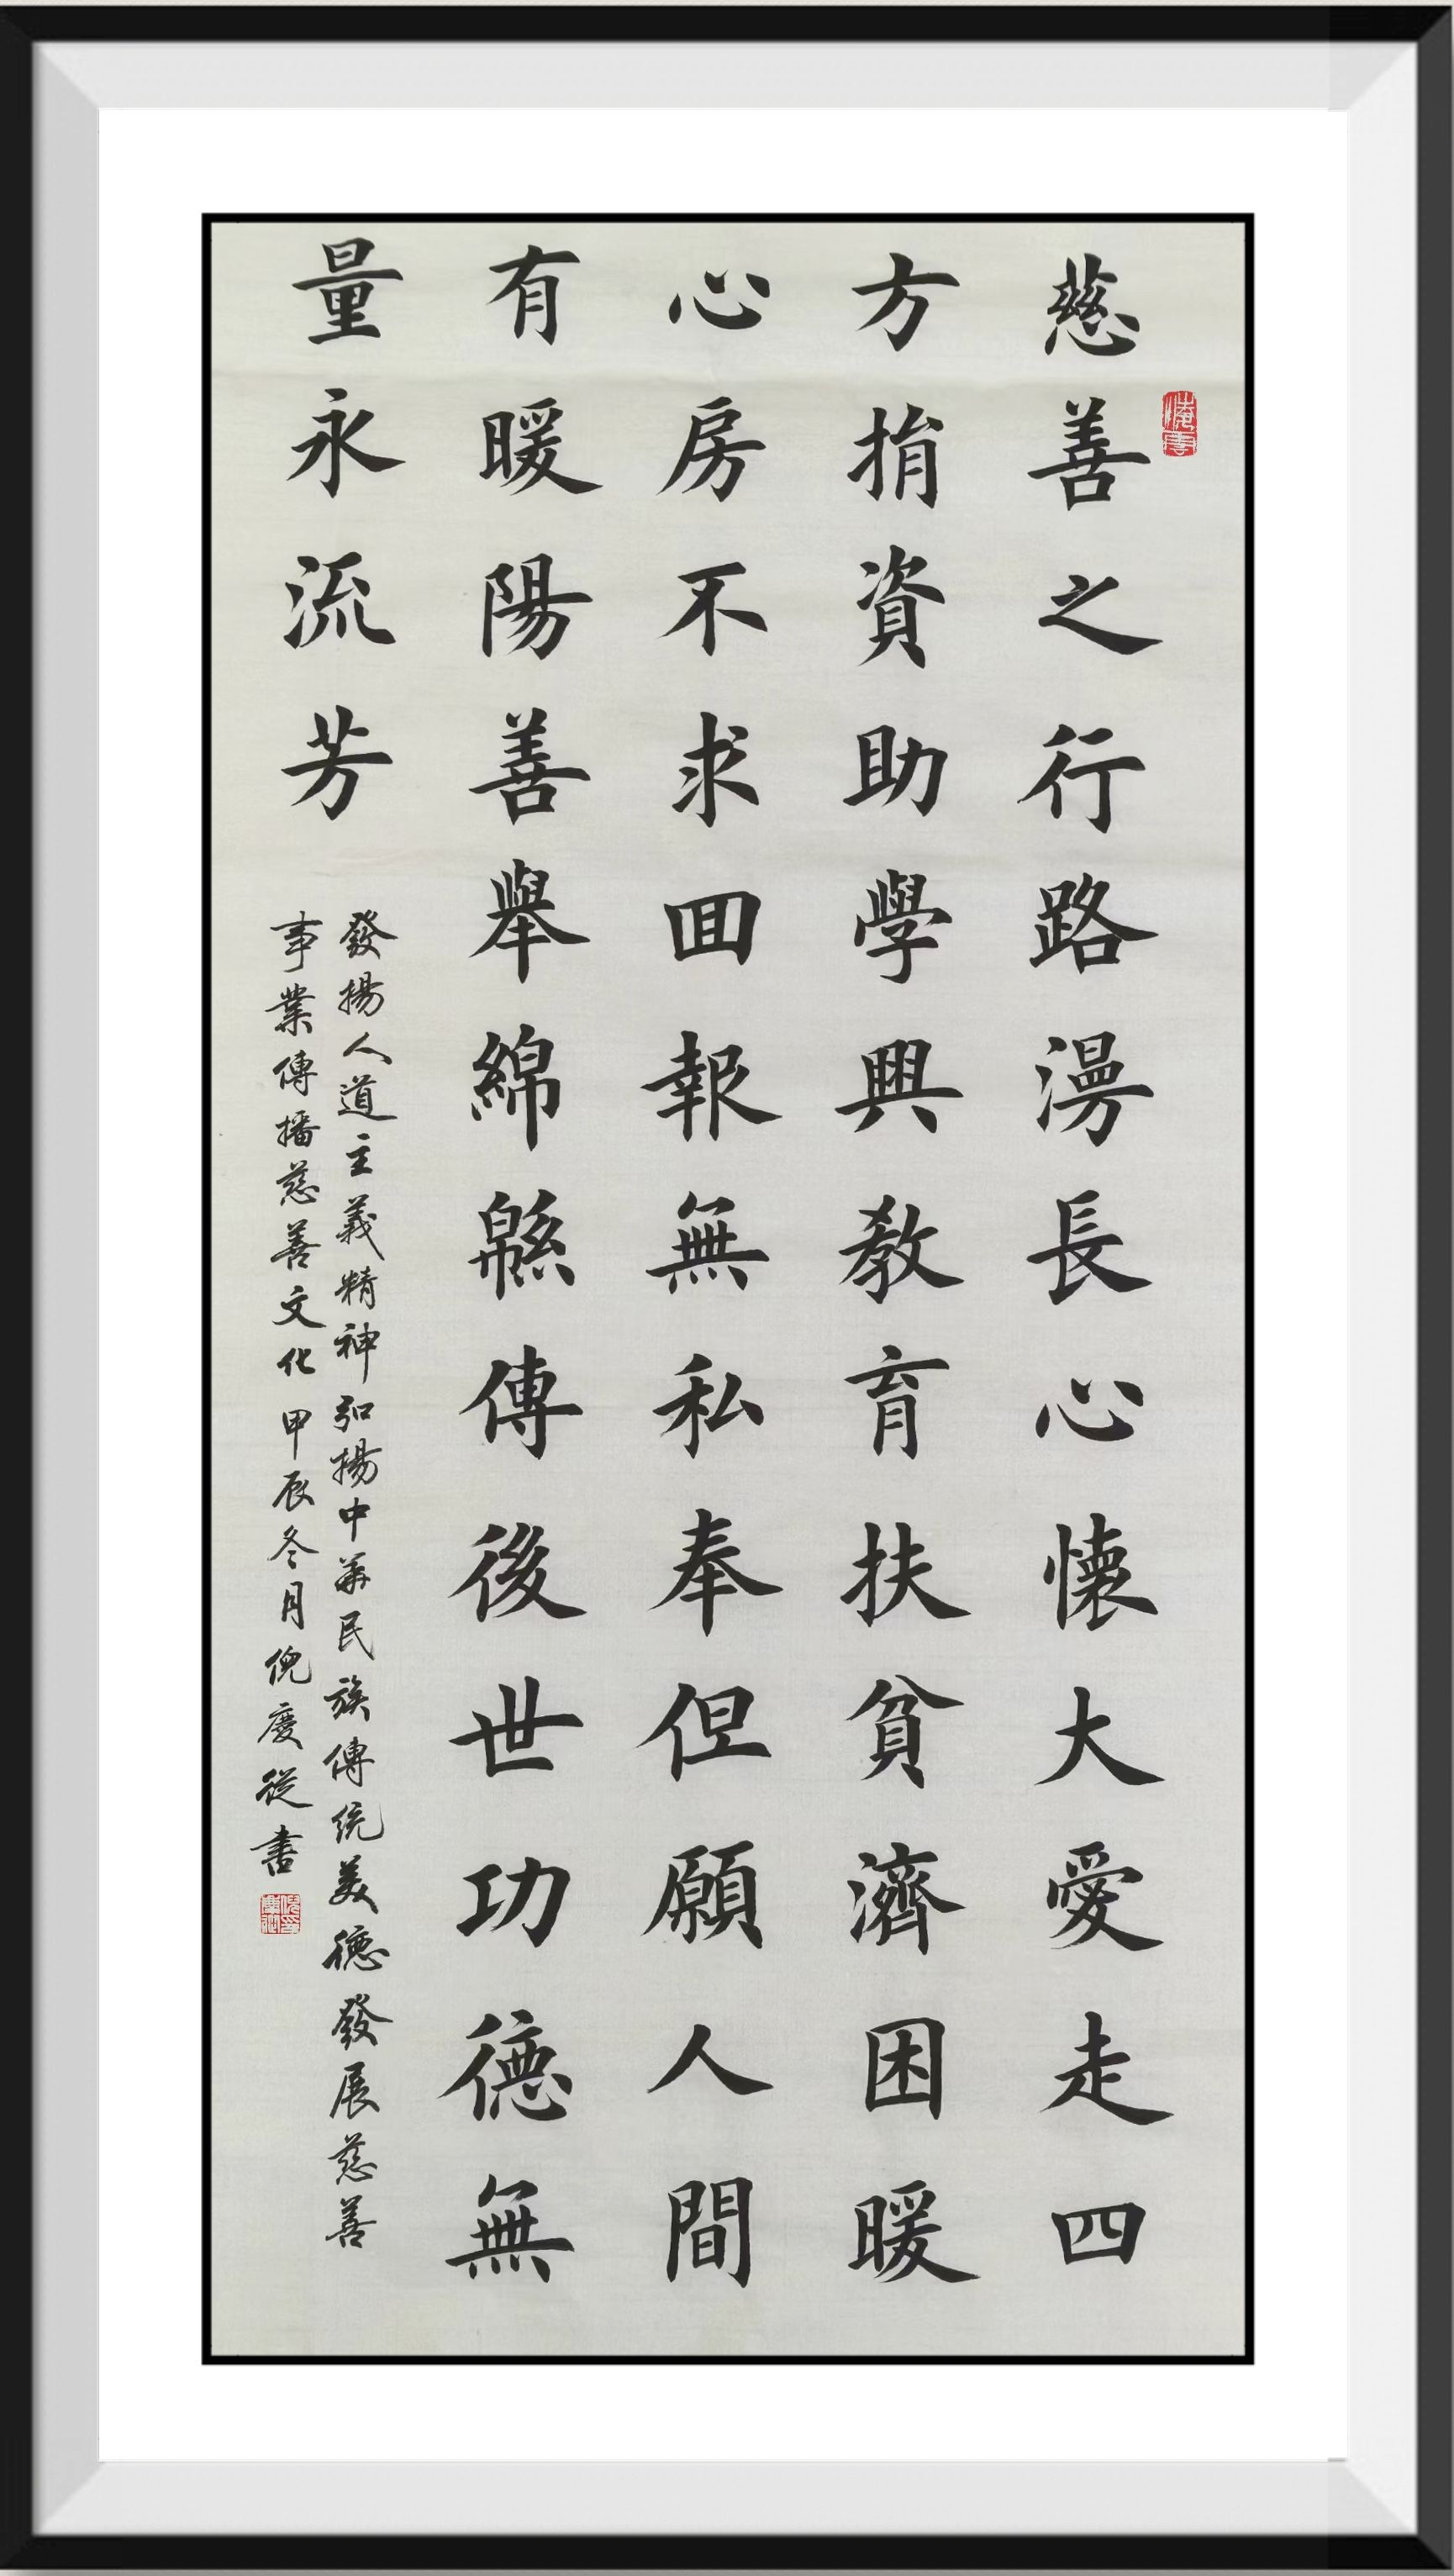 慈善之行路漫長心懷大愛走四
方捐資助學興教育扶貧濟困暖
心房不求回報無私奉但願人間
有暖陽善舉綿緜傳後世功德無
量永流芳
發揚人道主義精神弘揚中華民族傳統美德發展慈善
事業傳播慈善文化 甲辰冬月倪慶從書